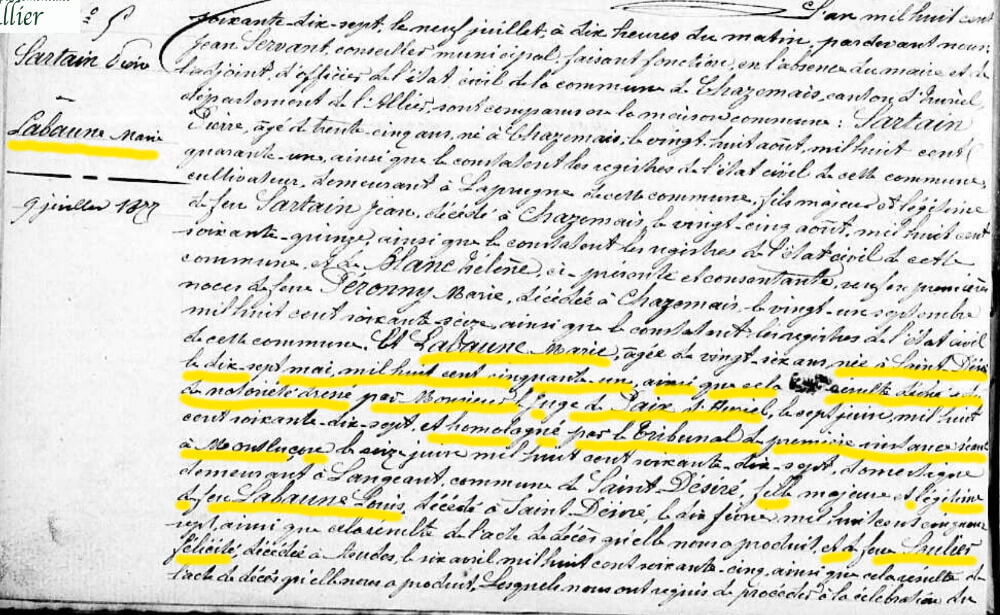 llier
n° 5
Sartain Pierre
Labaune Marie
9 juillet 1877
L'an mil huit cent
soixante-dix-sept, le neuf juillet, à dix heures du matin, pardevant nous
Jean Servant, conseiller municipal, faisant fonction, en l'absence du maire et de
l'adjoint, d'officier de l'état civil de la commune de Chazemais, canton d'Huriel,
département de l'Allier, sont comparus en la maison commune : Sartain
Pierre, âgé de trente-cinq ans, né à Chazemais, le vingt-huit août, mil huit cent
quarante-un, ainsi que le constatent les registres de l'état civil de cette commune,
cultivateur, demeurant à Laprugne de cette commune, fils majeur et légitime
de feu Sartain Jean, décédé à Chazemais, le vingt-cinq août, mil huit cent
soixante-quinze, ainsi que le constatent les registres de l'état civil de cette
commune, et de Blanc Hélène, ci-présente et consentante, veuf en premières
noces de feue Peronny Marie, décédée à Chazemais, le vingt-un septembre
mil huit cent soixante-seize, ainsi que le constatent les registres de l'état civil
de cette commune. Et Labaune Marie, âgée de vingt-six ans, née à Saint Désiré
le dix-sept mai, mil huit cent cinquante-un, ainsi que cela résulte d'un acte
de notoriété dressé par Monsieur le Juge de Paix d'Huriel, le sept juin, mil huit
cent soixante-dix-sept, et homologué par le Tribunal de première instance séant
à Montluçon le seize juin mil huit cent soixante-dix-sept, domestique
demeurant à Langeant, commune de Saint Désiré, fille majeure et légitime
de feu Labaune Louis, décédé à Saint-Désiré, le dix février mil huit cent cinquante
sept, ainsi que cela résulte de l'acte de décès qu'elle nous a produit et de feue
Félicité, décédée à Audes, le six avril mil huit cent soixante-cinq, ainsi que cela résulte de
l'acte de décès qu'elle nous a produit, Lesquels nous ont requis de procéder à la célébration du